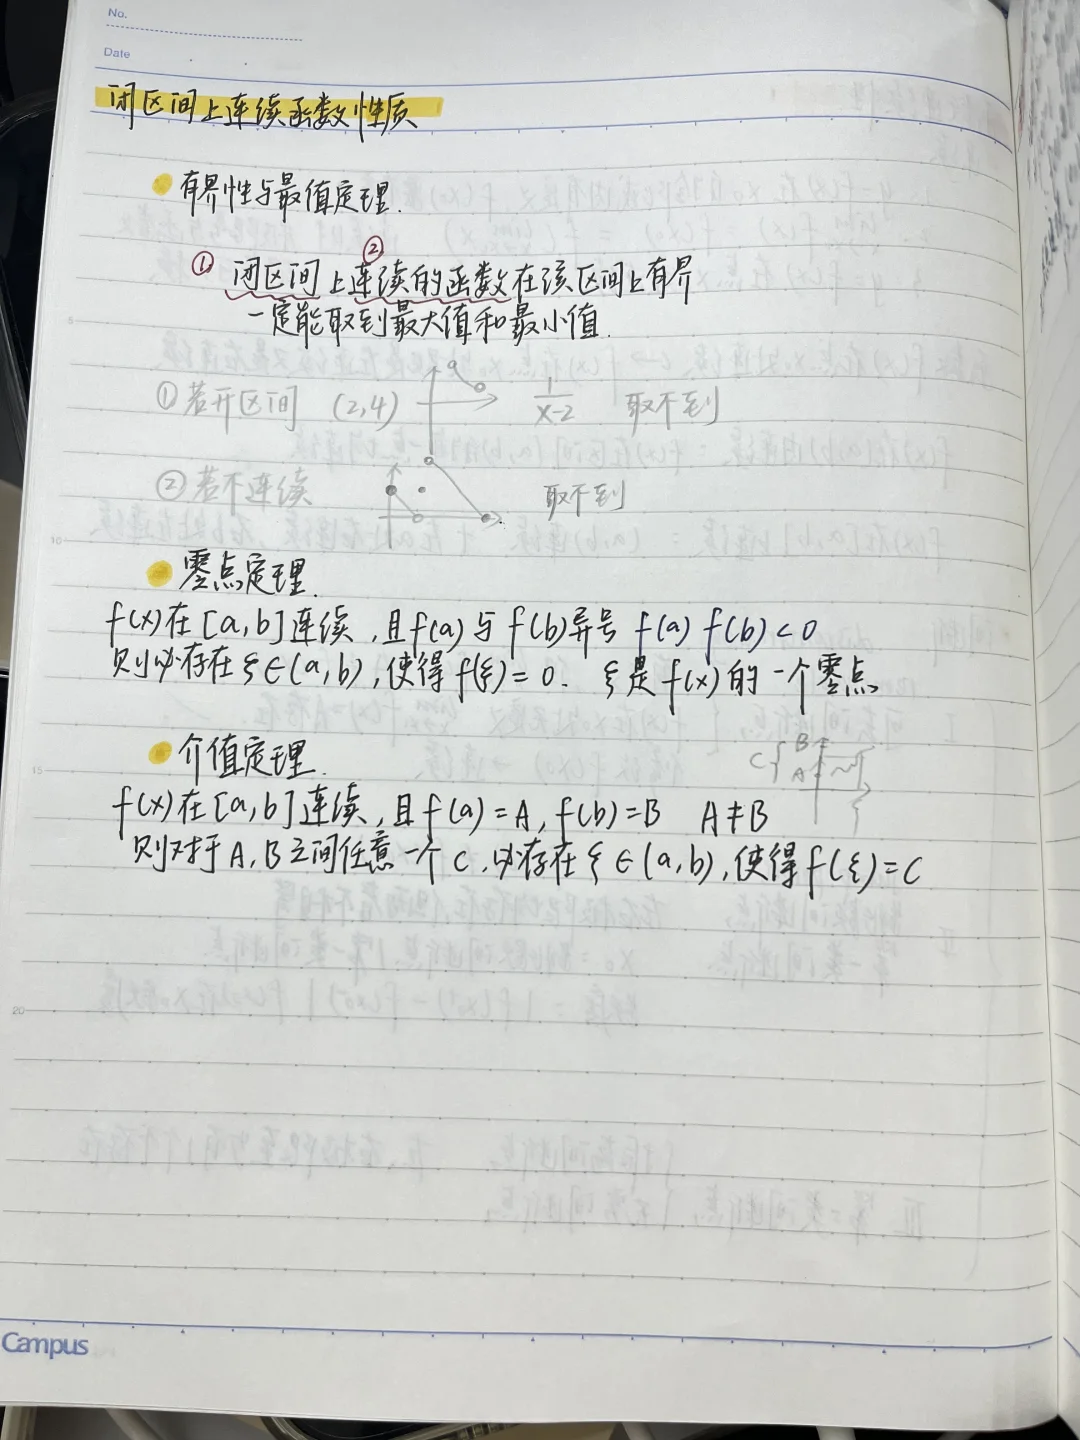 No.
Date
闭区间上连续函数性质
有界性与最值定理.
① ②
闭区间上连续的函数在该区间上有界
一定能取到最大值和最小值.
①若开区间 (2,4) 1/(x-2) 取不到
②若不连续 取不到
零点定理.
f(x)在[a,b]连续,且f(a)与f(b)异号 f(a) f(b)<0
则必存在ξ∈(a,b),使得f(ξ)=0. ξ是f(x)的一个零点
介值定理.
C { B A
f(x)在[a,b]连续,且f(a)=A,f(b)=B A≠B
则对于A,B之间任意一个C,必存在ξ∈(a,b),使得f(ξ)=C
5
10
15
20
Campus